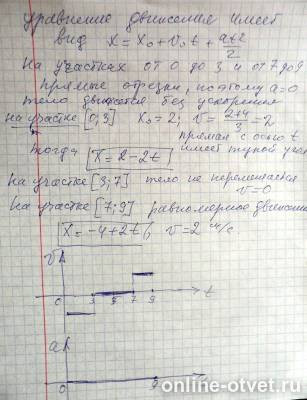 уравнение движения имеет
вид x = x₀ + v₀t + at2/2
на участках от 0 до 3 и от 7 до 9
прямые отрезки, поэтому a=0
тело движется без ускорения
на участке [0;3] x₀=2; v = 2+4/3 = 2
прямая с осью t
тогда x=2-2t имеет тупой угол
На участке [3;7] тело не перемещается
v=0
На участке [7;9] равномерное движение
x=-4+2t v=2 м/с
v
0 3 5 7 9 t
a
0 9
online-otvet.ru